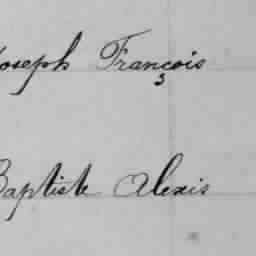 Joseph François
Baptiste Alexis